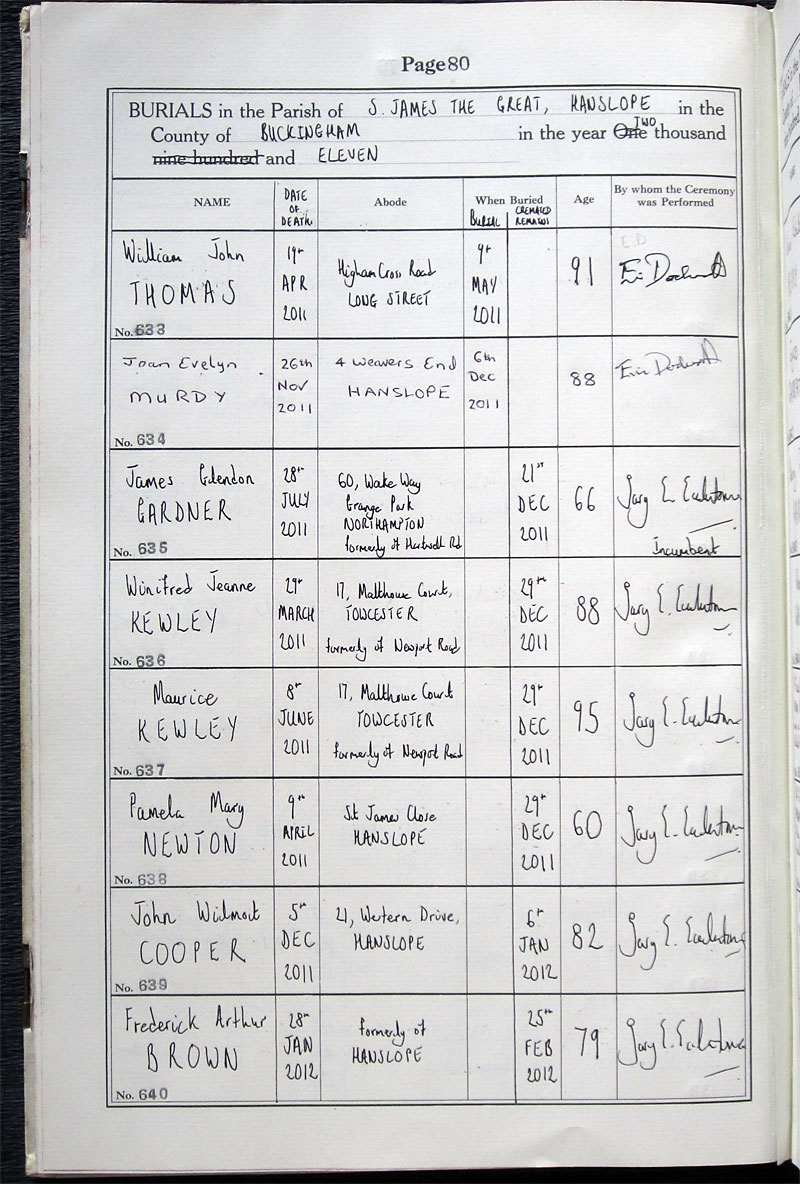 Page 80
BURIALS in the Parish of S. JAMES THE GREAT, HANSLOPE in the
County of BUCKINGHAM in the year One TWO thousand
nine hundred and ELEVEN
NAME DATE OF DEATH. Abode When Buried BURIAL CREMATED REMAINS Age By whom the Ceremony was Performed
William John
THOMAS
No. 633
19th
APR
2011
Higham Cross Road
LONG STREET
9th
MAY
2011
91
E.D
Joan Evelyn
MURDY
No. 634
26th
Nov
2011
4 Weavers End
HANSLOPE
6th
Dec
2011
88
James Glendon
GARDNER
No. 635
28th
JULY
2011
60, Wake Way
Grange Park
NORTHAMPTON
formerly of Hartwell Rd
21st
DEC
2011
66
Gary E.
Incumbent
Winifred Jeanne
KEWLEY
No. 636
29th
MARCH
2011
17, Malthouse Court,
TOWCESTER
formerly of Newport Road
29th
DEC
2011
88
Gary E.
Maurice
KEWLEY
No. 637
8th
JUNE
2011
17, Malthouse Court
TOWCESTER
formerly of Newport Road
29th
DEC
2011
95
Gary E.
Pamela Mary
NEWTON
No. 638
9th
APRIL
2011
St James Close
HANSLOPE
29th
DEC
2011
60
Gary E.
John Wilmot
COOPER
No. 639
5th
DEC
2011
21, Western Drive,
HANSLOPE
6th
JAN
2012
82
Gary E.
Frederick Arthur
BROWN
No. 640
28th
JAN
2012
formerly of
HANSLOPE
25th
FEB
2012
79
Gary E.